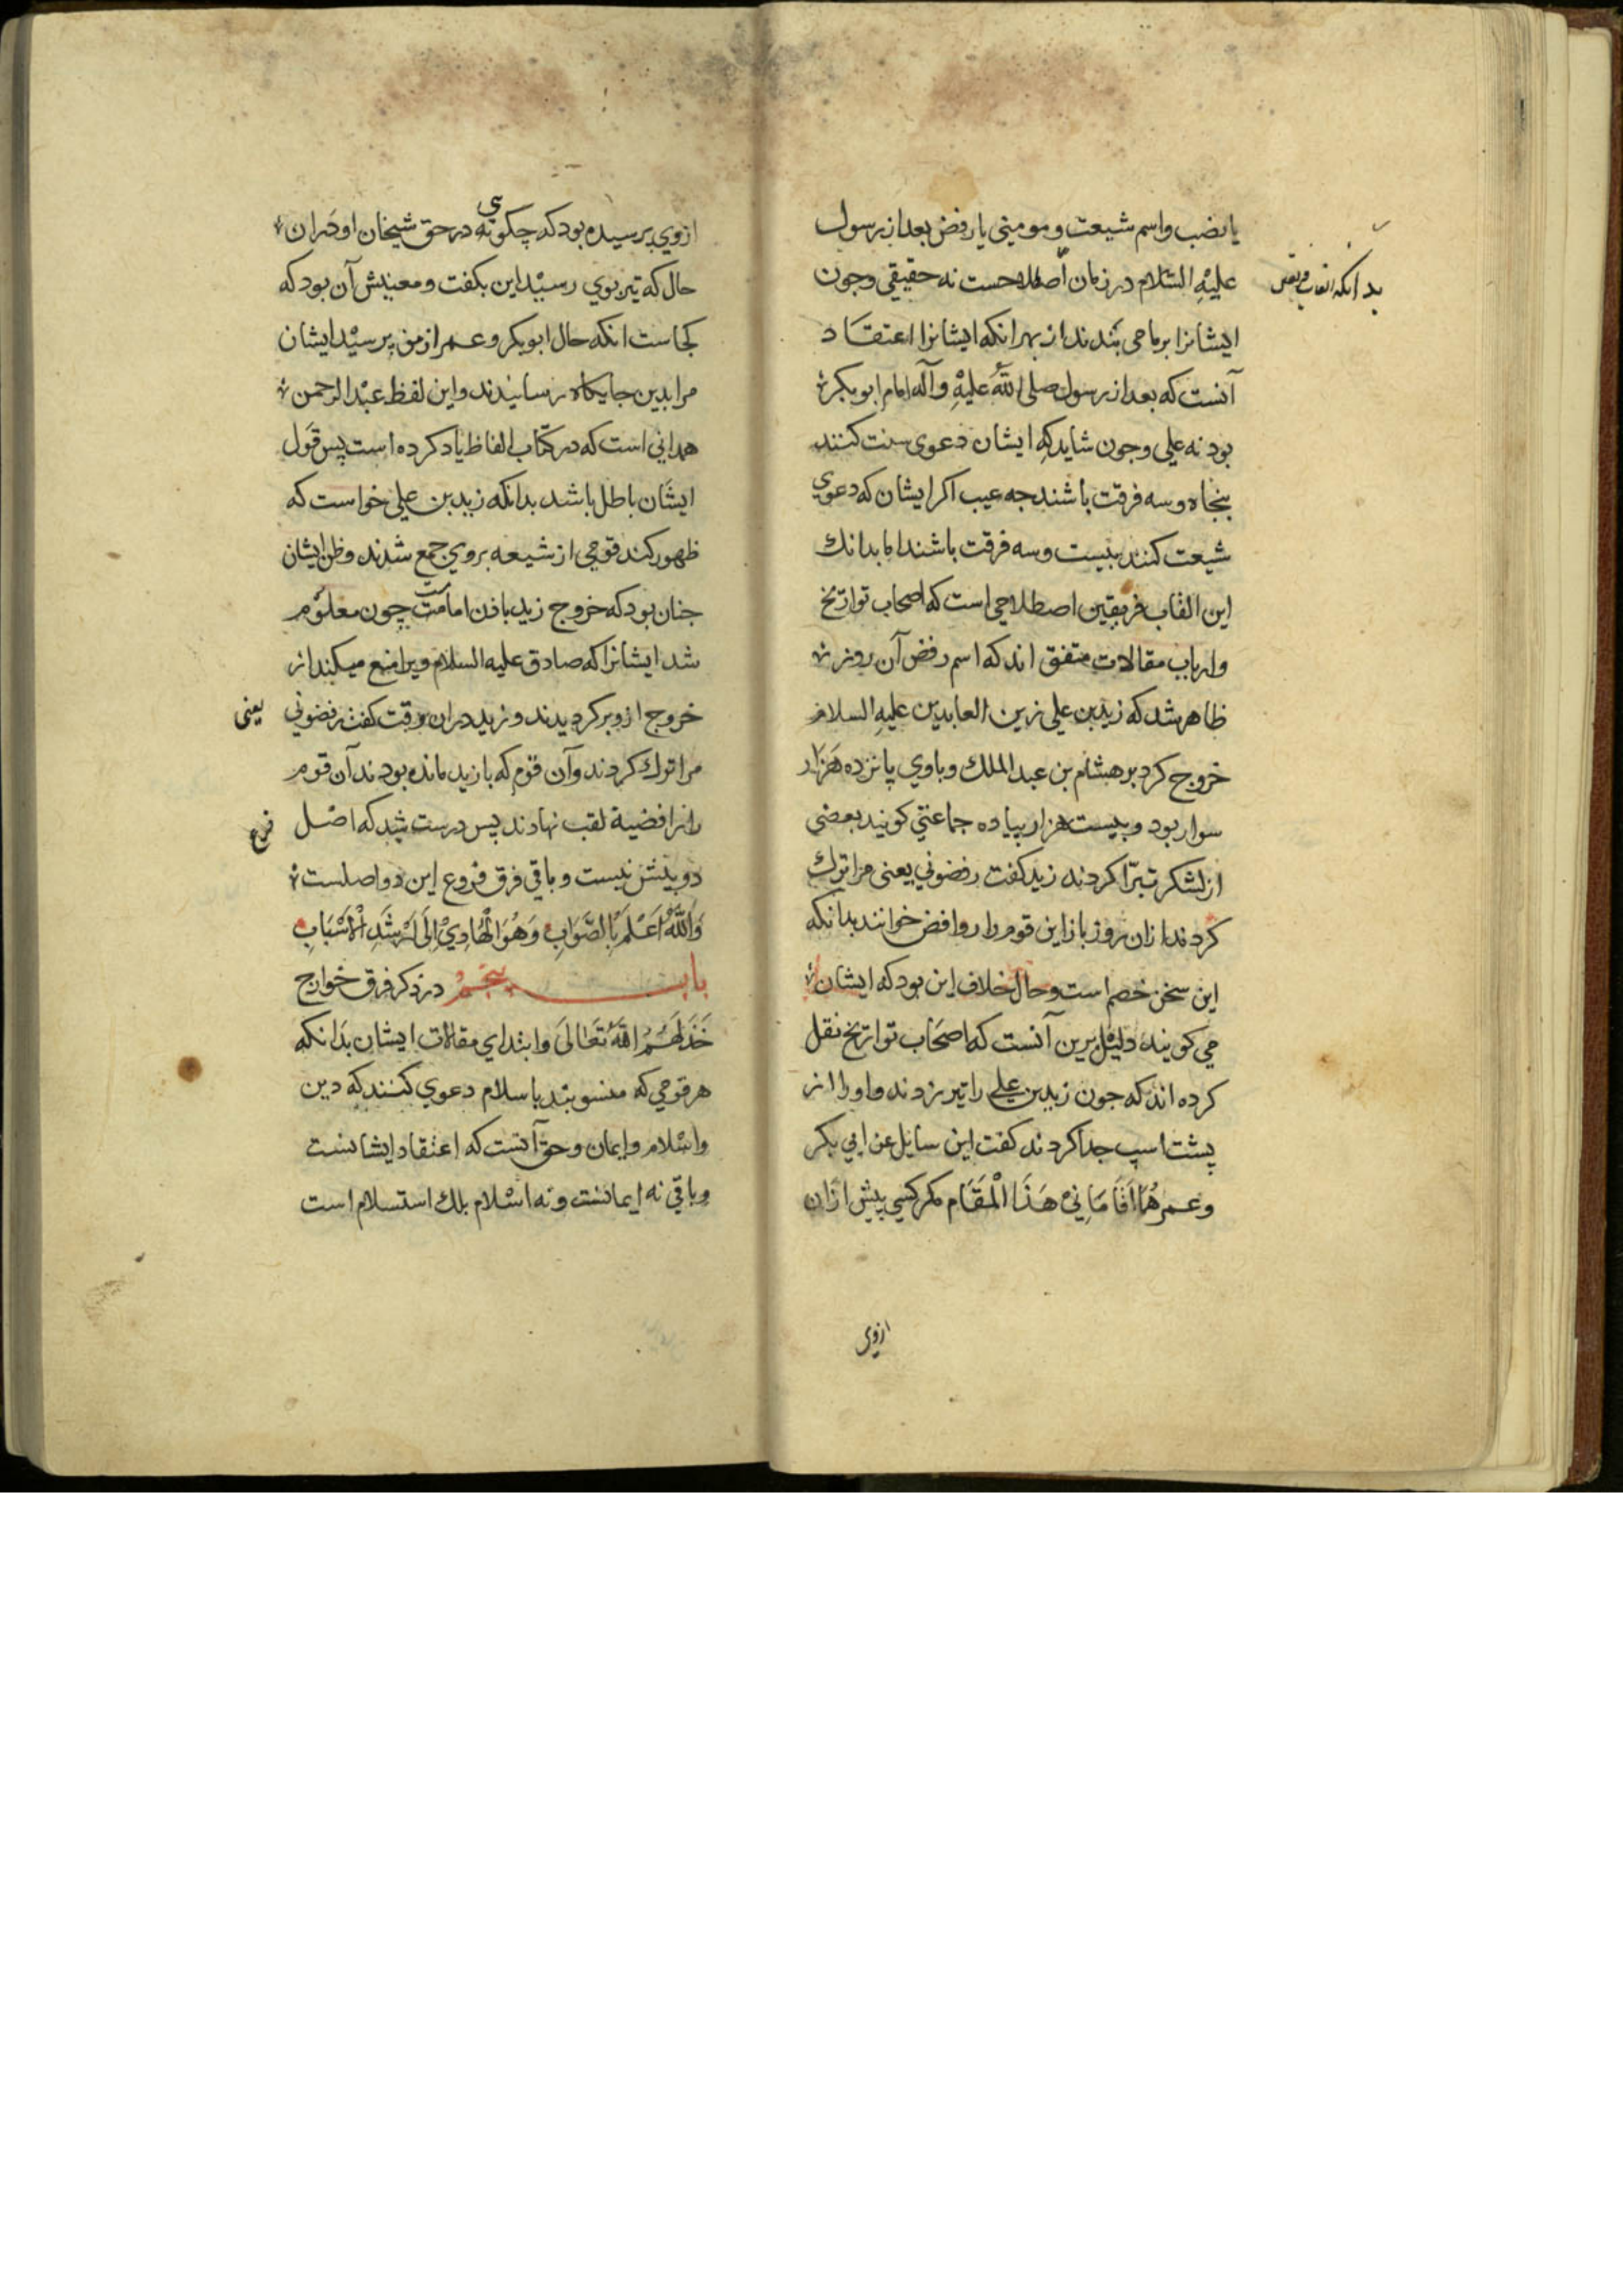 یا نصب واسم شیعت ومومنی یا رفض بعد از رسول
علیه السّلام در زمان اصطلاحست نه حقیقی وجون
بدانکه القاب
ایشانرا برما می بندند از بهر انکه ایشانرا اعتقاد
آنست که بعد از رسول صلی الله علیه وآله امام ابو بکر
بود نه علی وجون شاید که ایشان دعوی سنت کنند
پنجاه وسه فرقت باشند جه عیب اکر ایشان که دعوی
شیعت کنند بیست وسه فرقت باشند اما بدانك
این القاب فریقین اصطلاحی است که اصحاب تواریخ
وارباب مقالات متفق اند که اسم رفض آن روز
ظاهر شد که زید بن علی زین العابدین علیه السلام
خروج کرد بر هشام بن عبد الملك وباوی پانزده هزار
سوار بود وبیست هزار پیاده جماعتی کویند بعضی
از لشکر تبرّا کردند زید کفت رفضونی یعنی مرا ترك
کردند ازان روز باز این قوم را روافض خوانند بدانکه
این سخن خصم است وحال خلاف این بود که ایشان
می کویند دلیل برین آنست که اصحاب تواریخ نقل
کرده اند که جون زید بن علی را تیر زدند واورا از
پشت اسپ جدا کردند کفت این سایل عن ابی بکر
وعمر هُمَا اَقَامَانِی هَذَا الْمَقَام مکر کسی پیش ازان
ازوی
ازوی پرسیده بود که چکونه یی در حق شیخان او دران
حال که تیر بوی رسید این بکفت ومعنیش آن بود که
کجاست انکه حال ابو بکر وعمر از من پرسید ایشان
مرا بدین جایکاه رسانیدند واین لفظ عبد الرحمن
همدانی است که در کتاب الفاظ یاد کرده است پس قول
ایشان باطل باشد بدانکه زید بن علی خواست که
ظهور کند قومی از شیعه بروی جمع شدند وظن ایشان
جنان بود که خروج زید باذن امامت چون معلوم
شد ایشانرا که صادق علیه السلام ویرا منع میکند از
خروج ازو برکردیدند وزید دران وقت کفت رفضونی یعنی
مرا ترك کردند وآن قوم که با زید مانده بودند آن قوم
را رافضیة لقب نهادند پس درست شد که اصل
فرع
دو بیش نیست وباقی فرق فروع این دو اصلست
وَاللّهُ اَعْلَمُ بِالصَّوَابِ وَهُوَ الْهَادِیْ اِلَی اَرْشَدِ الْاَسْبَابِ
باب پنجم در ذکر فرق خوارج
خَذَلَهُمُ اللّهُ تَعَالَی وابتدای مقالات ایشان بدانکه
هر قومی که منسوبند باسلام دعوی کنند که دین
واسلام وایمان وحق آنست که اعتقاد ایشانست
وباقی نه ایمانست ونه اسلام بلك استسلام است